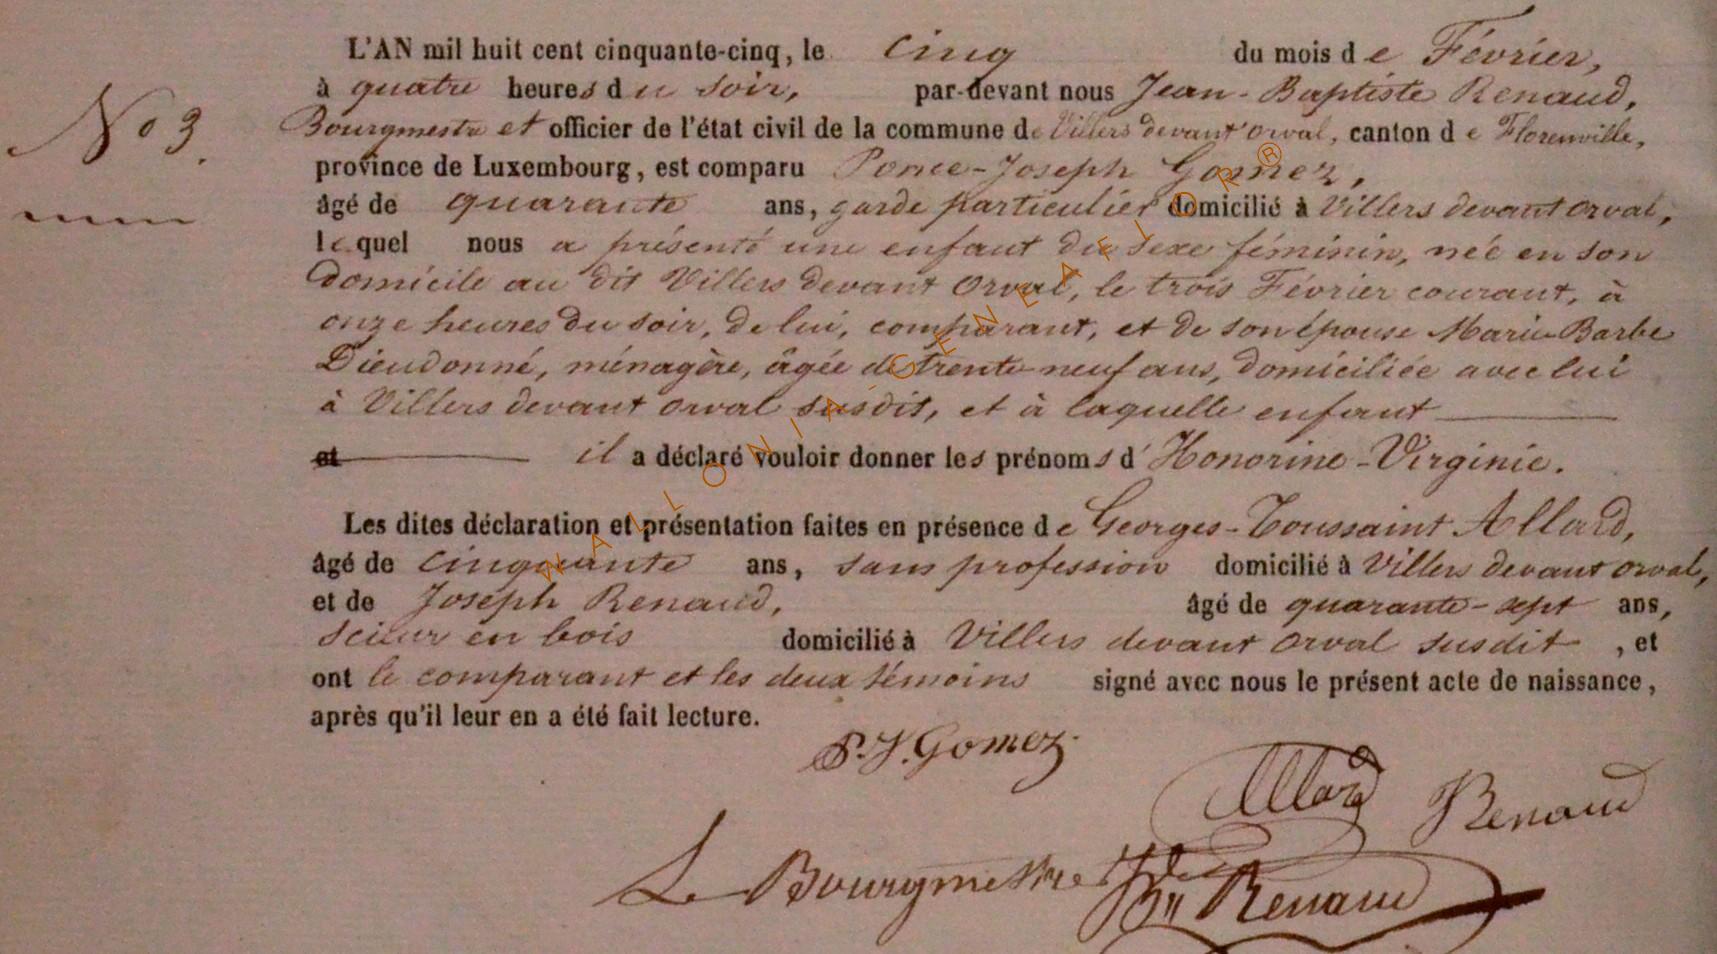 L'AN mil huit cent cinquante-cinq, le cinq du mois de Février,
à quatre heures du soir, par-devant nous Jean-Baptiste Renaud,
No 3.
Bourgmestre et officier de l'état civil de la commune de Villers devant orval, canton de Florenville,
province de Luxembourg, est comparu Ponce-Joseph Gomez,
âgé de quarante ans, garde particulier domicilié à Villers devant orval,
lequel nous a présenté une enfant du sexe féminin, née en son
domicile au dit Villers devant Orval, le trois Février courant, à
onze heures du soir, de lui, comparant, et de son épouse Marie-Barbe
Dieudonné, ménagère, âgée de trente-neuf ans, domiciliée avec lui
à Villers devant orval susdit, et à laquelle enfant
et il a déclaré vouloir donner les prénoms d'Honorine-Virginie.
Les dites déclaration et présentation faites en présence de Georges-Toussaint Allard,
âgé de cinquante ans, sans profession domicilié à Villers devant orval,
et de Joseph Renaud, âgé de quarante-sept ans,
scieur en bois domicilié à Villers devant orval susdit, et
ont le comparant et les deux témoins signé avec nous le présent acte de naissance,
après qu'il leur en a été fait lecture.
P.J. Gomez
Allard Renaud
Le Bourgmestre Renaud
WALLONIA-GENEAFLOR®